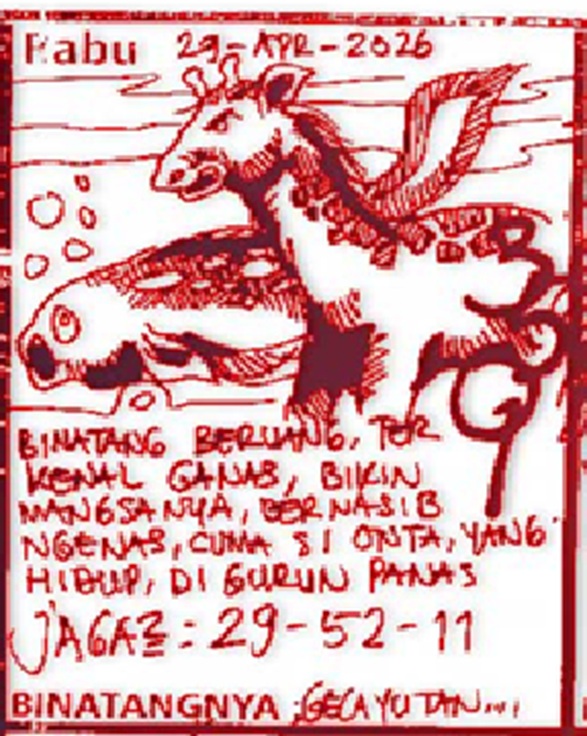 Rabu 29-APR-2026
BINATANG BERUANG, TER
KENAL GANAS, BIKIN
MANGSANYA, BERNASIB
NGENAS, CUMA SI ONTA, YANG
HIDUP, DI GURUN PANAS
JAGAZ : 29-52-11
BINATANGNYA :